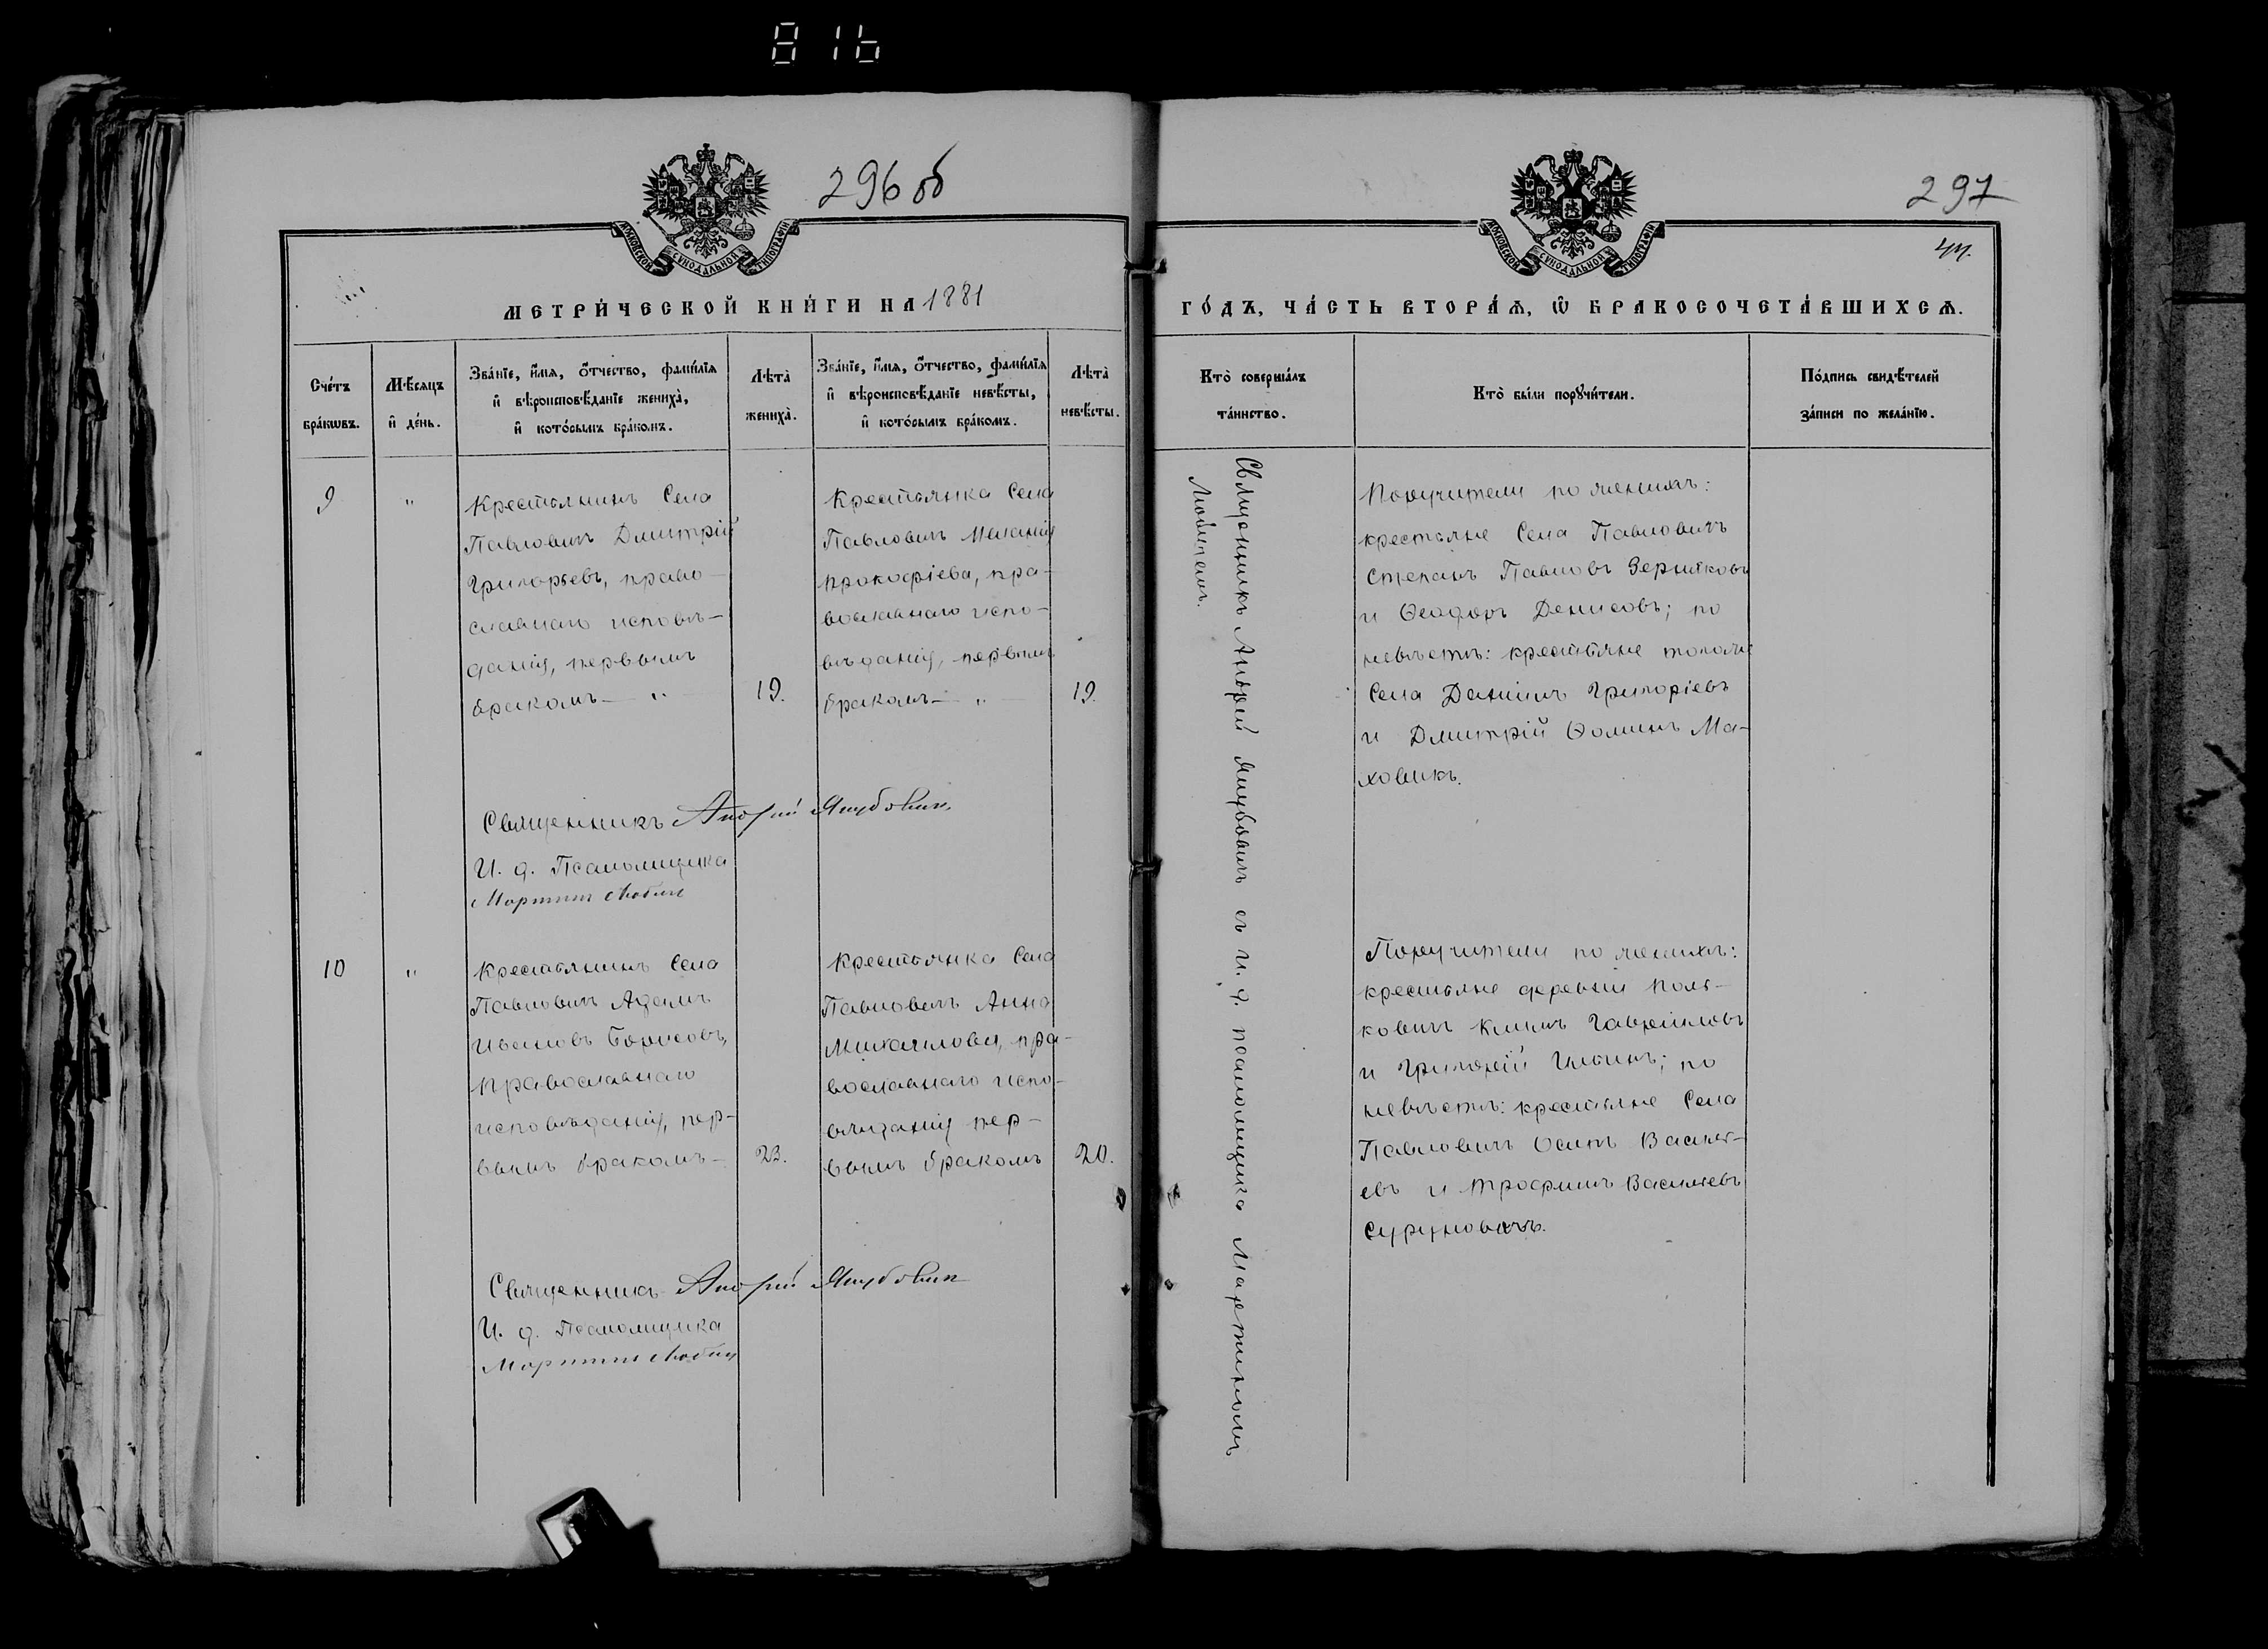 816
296 об
МОСКОВСКОЙ СѴНОДАЛЬНОЙ ТИПОГРАФІИ
МЕТРИ́ЧЕСКОЙ КНИ́ГИ НА 1881
Сче́тъ бра́кѡвъ.
Мѣ́сяцъ и҆ де́нь.
Зва́нїе, и҆́мя, ѻ҆́тчество, фами́лїя
и҆ вѣроисповѣ́данїе жениха̀,
и҆ кото́рымъ бра́комъ.
Лѣта̀ жениха̀.
Зва́нїе, и҆́мя, ѻ҆́тчество, фами́лїя
и҆ вѣроисповѣ́данїе невѣ́сты,
и҆ кото́рымъ бра́комъ.
Лѣта̀ невѣ́сты.
9
"
Крестьянинъ Села
Павловичъ Дмитрій
Григорьевъ, право-
славнаго исповѣ-
данія, первымъ
бракомъ — "
19.
Крестьянка Села
Павловичъ Меланія
Прокофіева, пра-
вославнаго испо-
вѣданія, первымъ
бракомъ — "
19.
Священникъ Андрей Якубовичъ
И. д. Псаломщика
Мартинъ
10
"
Крестьянинъ Села
Павловичъ Адамъ
Ивановъ Борисовъ,
Православнаго
исповѣданія, пер-
вымъ бракомъ —
23.
Крестьянка Села
Павловичъ Анна
Михайлова, пра-
вославнаго испо-
вѣданія пер-
вымъ бракомъ
20.
Священникъ Андрей Якубовичъ
И. д. Псаломщика
Мартинъ
297
44.
МОСКОВСКОЙ СѴНОДАЛЬНОЙ ТИПОГРАФІИ
ГО́ДЪ, ЧА́СТЬ ВТОРА́Я, Ѽ БРАКОСОЧЕТА́ВШИХСЯ.
Кто̀ соверша́лъ та́инство.
Кто̀ бы́ли порꙋчи́тели.
По́дпись свидѣ́телей
за́писи по жела́нїю.
Священникъ Андрей Якубовичъ съ и. д. псаломщика Мартиномъ
Поручители по женихѣ:
крестьяне Села Павловичъ
Степанъ Павловъ Зерниковъ
и Ѳеодоръ Денисовъ; по
невѣстѣ: крестьяне тогоже
Села Даніилъ Григоріевъ
и Дмитрій Ѳоминъ Ма-
ховикъ.
Поручители по женихѣ:
крестьяне деревни Поль-
ковичъ Климъ Гавріиловъ
и Григорій Ильинъ; по
невѣстѣ: крестьяне Села
Павловичъ Осипъ Василь-
евъ и Трофимъ Васильевъ
Суруновичъ.